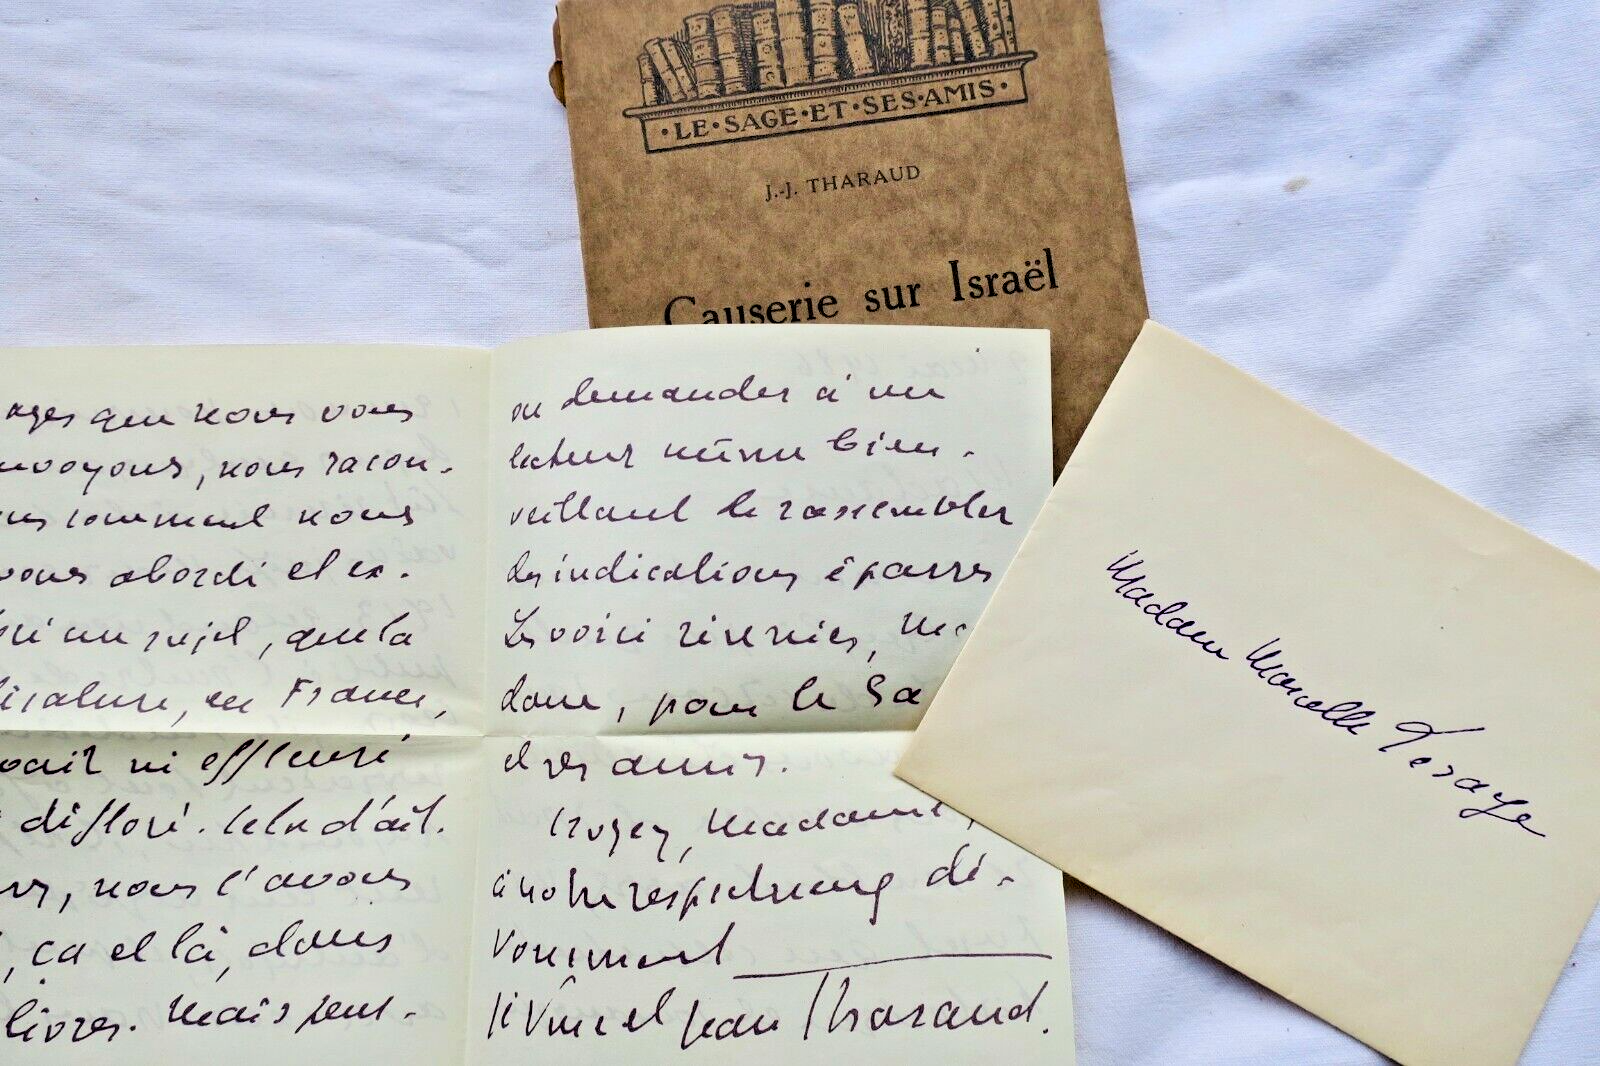 ·LE·SAGE·ET·SES·AMIS·
J.-J. THARAUD
Causerie sur Israël
ages que nous vous
nvoyons, nous racon-
ns comment nous
vons abordé et ex-
un sujet, que la
térature, en France,
vait ni effleuré
défloré. Cela d'ail-
rs, nous l'avons
, ça et là, dans
livres. Mais peut-
on demander à un
lecteur même bien-
veillant de rassembler
des indications éparses
Les voici réunies, Ma
dame, pour le Sa
et ses amis.
Croyez, Madame,
à notre respectueux dé-
vouement
Jérôme et Jean Tharaud.
Madame Marcelle Tinayre